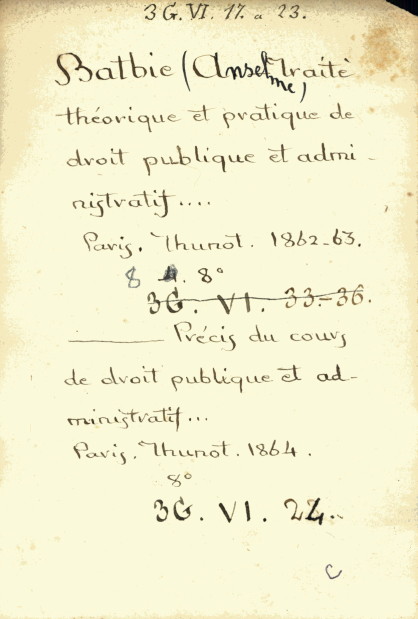 3 G. VI. 17. a 23.
Batbie (Anselme) Traité
théorique et pratique de
droit publique et admi-
nistratif....
Paris. Thunot. 1862-63.
8 4. 8°
3G. VI. 33-36.
Précis du cours
de droit publique et ad-
ministratif...
Paris. Thunot. 1864.
8°
3G. VI. 24..
C